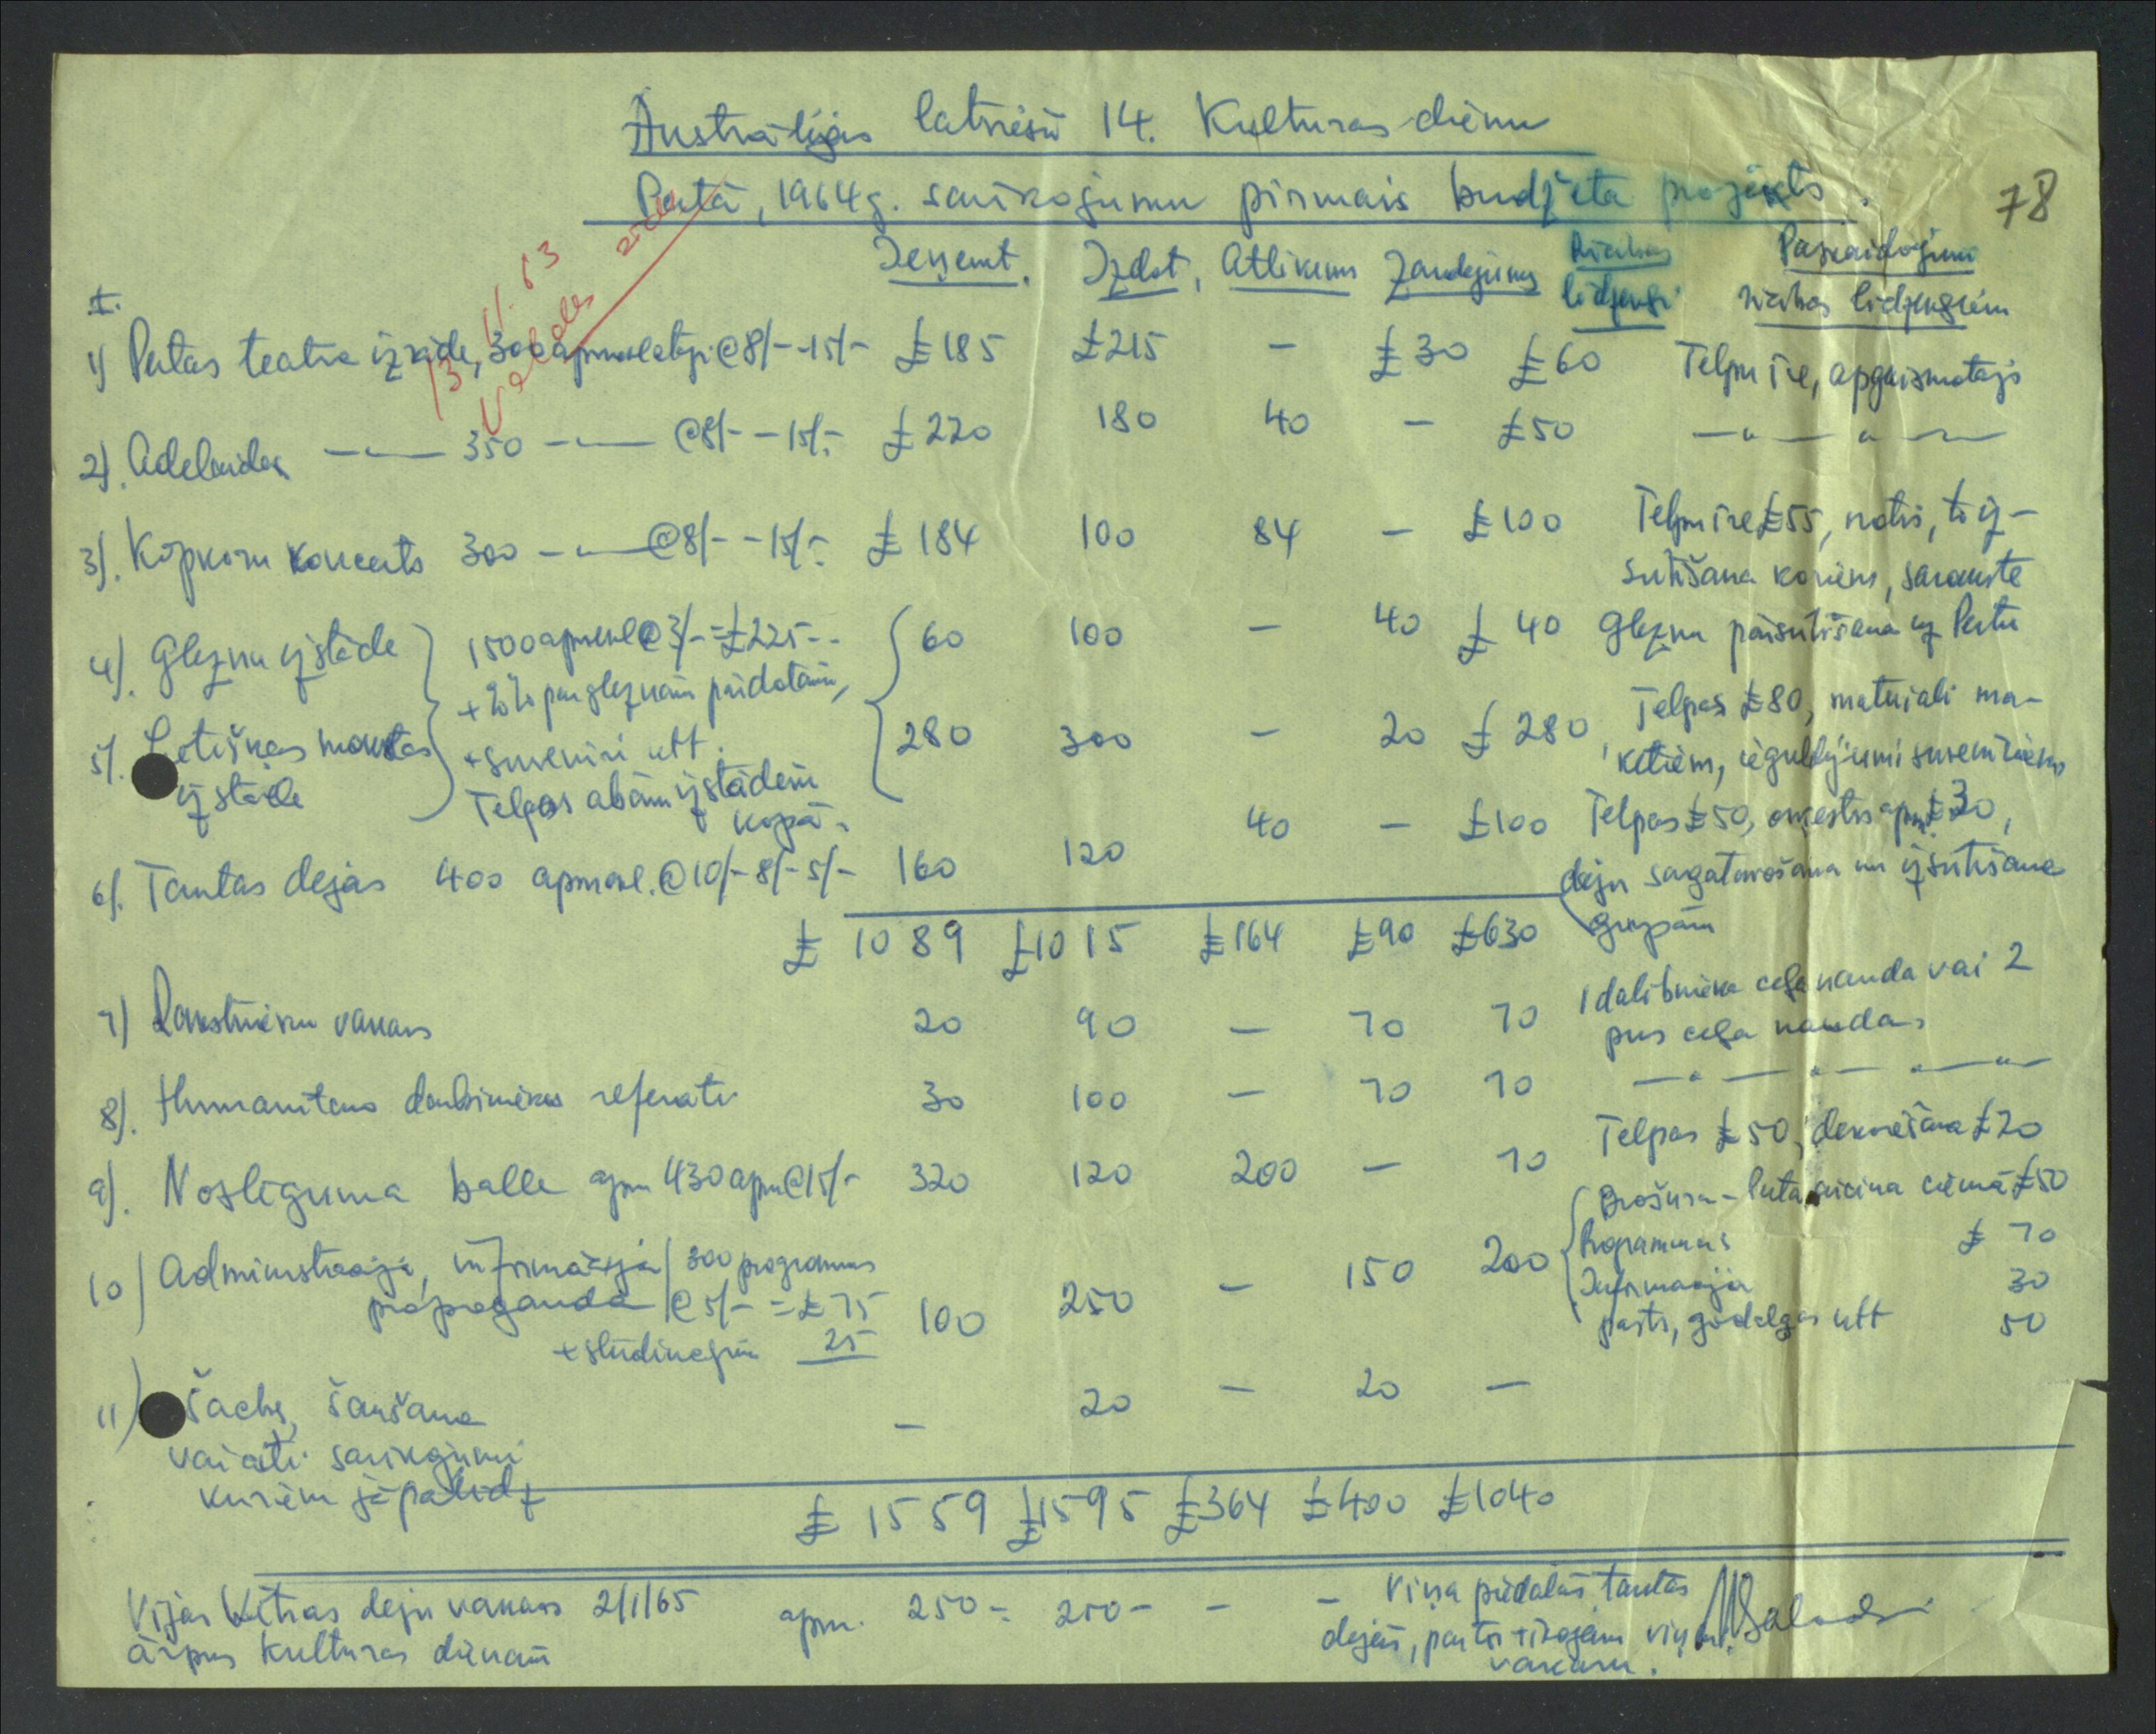 Austrālijas latviešu 14. Kulturas dienu
Pertā, 1964 g. sarīkojumu pirmais budžeta projekts.
78
13. 11. 63
Valdes
Ieņemt. Izdot. Atlikums Zaudējums Rīcības līdzekļi Paskaidojumi rīcības līdzekļiem
I.
1) Pertas teatra izrāde, 300 apmeklētāji @ 8/- - 15/- £185 £215 - £30 £60 Telpu īre, apgaismotājs
2). Adelaides —"— 350 —"— @ 8/- - 15/- £220 180 40 - £50 —"— " —
3). Kopkoru koncerts 300 —"— @ 8/- - 15/- £184 100 84 - £100 Telpu īre £55, notis, to iz-
sūtīšana koriem, sarakste
4). Gleznu izstāde 1500 apmekl @ 3/- = £225-- 60 100 - 40 £40 Gleznu pārsūtīšana uz Pertu
+ % par gleznām pārdotām,
5). Latvišķas mākslas izstāde + suveniri utt. 280 300 - 20 £280, Telpas £80, materiali ma-
ketiem, ieguldījumi suveniriem
Telpas abām izstādēm
kopā.
6). Tautas dejas 400 apmekl. @ 10/- 8/- 5/- 160 120 40 - £100 Telpas £50, orķestris apm £30,
deju sagatavošana un izsūtīšana
grupām
£1089 £1015 £164 £90 £630
7) Rakstnieku vakars 20 90 - 70 70 1 dalībnieka ceļa nauda vai 2
pus ceļa naudas
8). Humanitaro darbinieku referati 30 100 - 70 70 —"— " — " —
9). Nosleguma balle apm 430 apm @ 15/- 320 120 200 - 70 Telpas £50, dekorēšana £20
10) Administracija, informācija propaganda 300 programmas
@ 5/- = £75
+ sludinājumi 25
100 250 - 150 200
Brošura - Perta aicina ciemā £50
Programmas £70
Informacija 30
pasts, godalgas utt 50
11) Šachs, šaušana - 20 - 20 -
vai citi sarīkojumi
kuriem jāpalīdz
£1559 £1595 £364 £400 £1040
Vijas Vētras deju vakars 2/1/65 apm. 250- 250- - - Viņa piedalās tautas
ārpus kulturas dienām dejās, par to rīkojam viņas
vakaru.